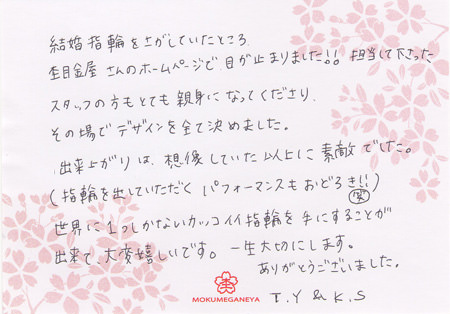 結婚指輪をさがしていたところ
杢目金屋さんのホームページで目が止まりました!! 担当して下さった
スタッフの方もとても親身になってくださり、
その場でデザインを全て決めました。
出来上がりは、想像していた以上に素敵でした。
(指輪を出していただくパフォーマンスもおどろき!! 笑)
世界に1つしかないカッコイイ指輪を手にすることが
出来て、大変嬉しいです。一生大切にします。
ありがとうございました。
MOKUMEGANEYA
T.Y & K.S